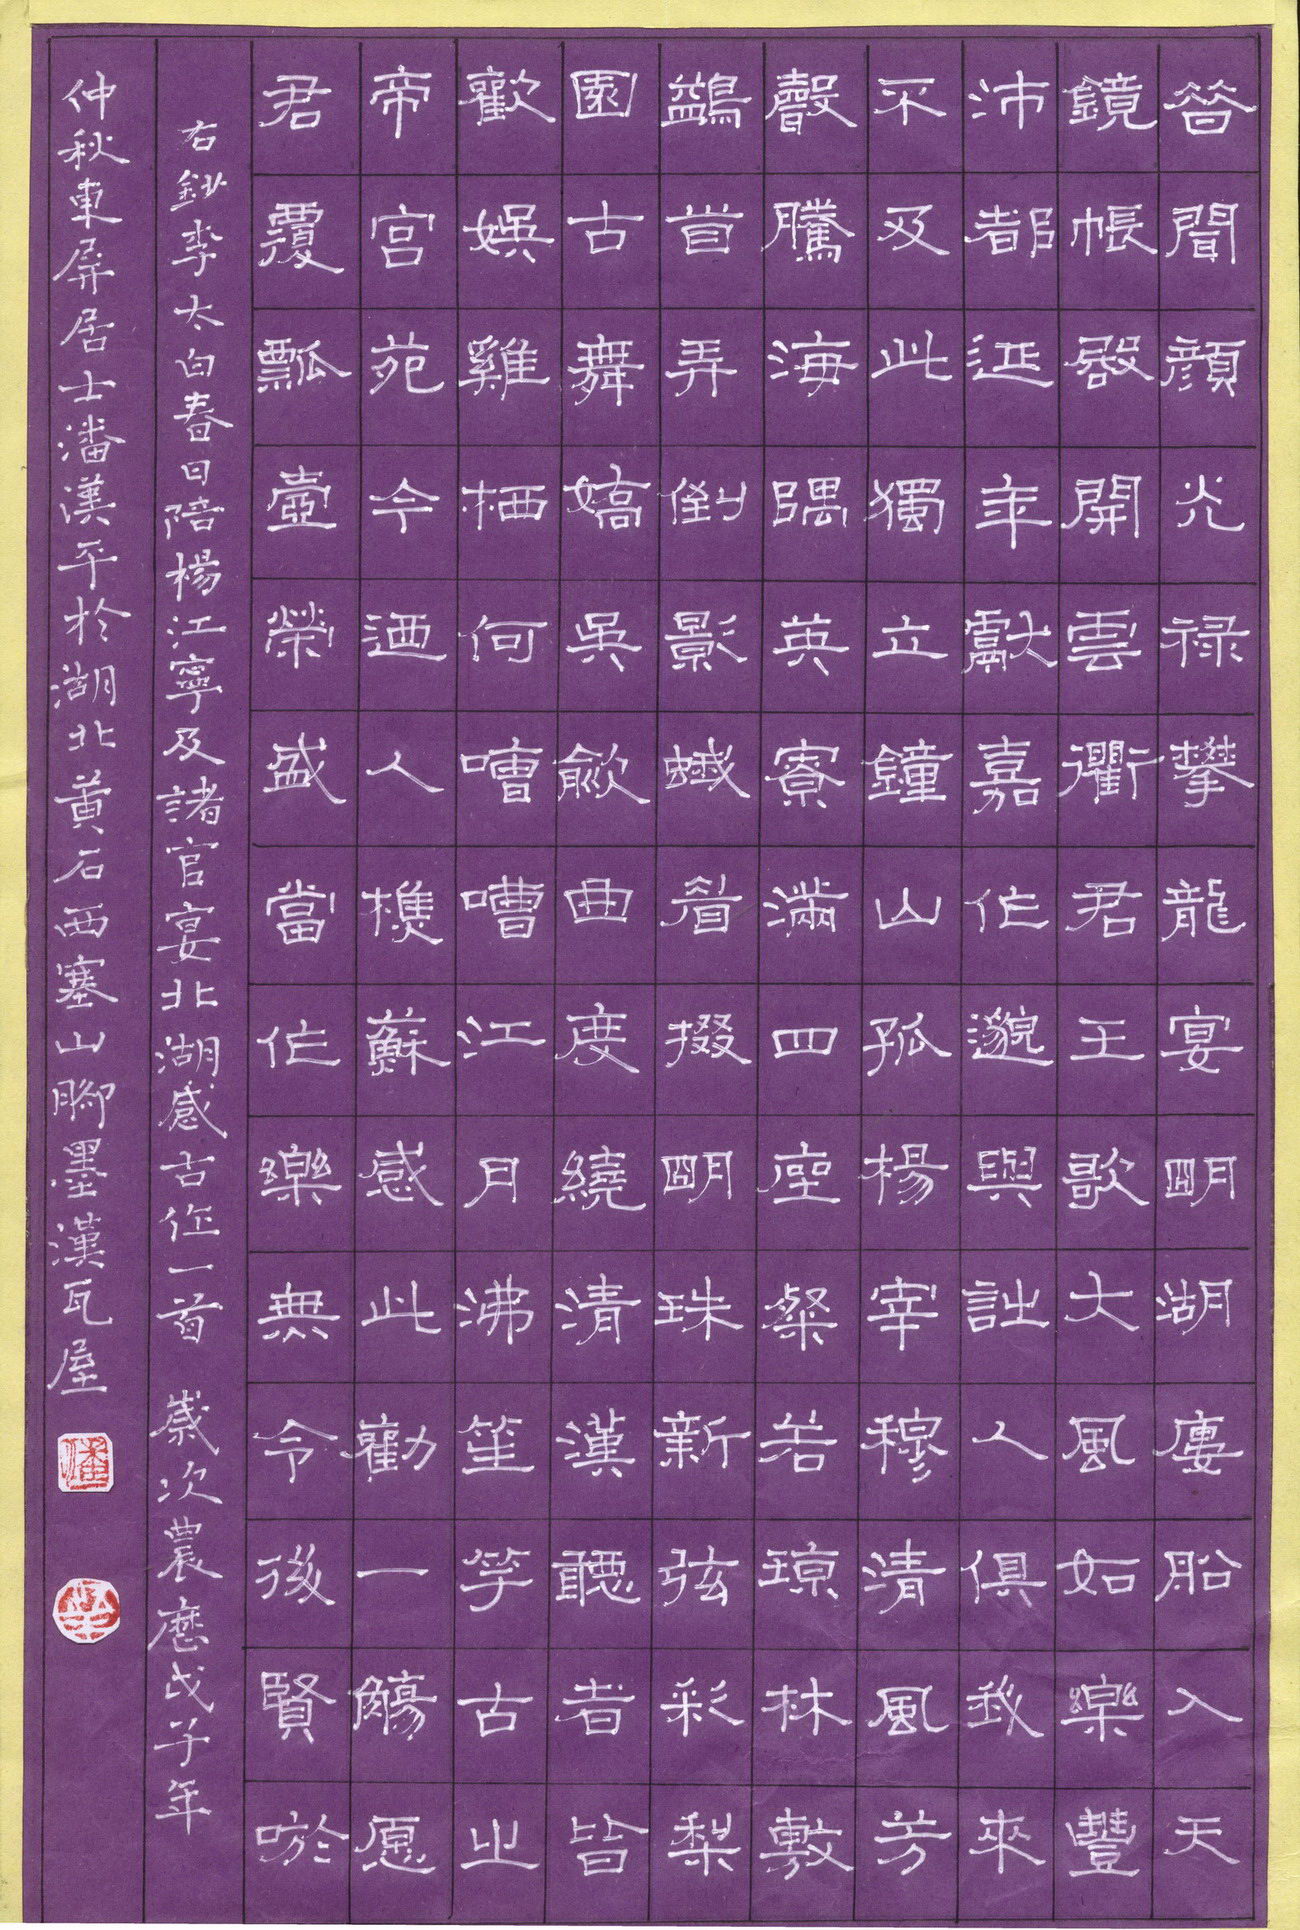 昔聞顔光祿攀龍宴朙湖廔船入天
鏡帳殿開雲衢君王歌大風如樂豐
沛都延年獻嘉作邈與詩人俱我來
不及此獨立鐘山孤楊宰穆清風芳
聲騰海隅英寮滿四座粲若琼林敷
鷁首弄倒影蛾眉掇朙珠新弦彩梨
園古舞嬌吳歈曲度繞清漢聽者皆
歡娛雞栖何嘈嘈江月沸笙竽古之
帝宮苑今迺人樵蘇感此勸一觴愿
君覆瓢壺榮盛當作樂無令後賢唹
右鈔李太白春日陪楊江寧及諸官宴北湖感古作一首 歲次農曆戊子年
仲秋東屏居士潘漢平於湖北黃石西塞山腳墨漢瓦屋
潘